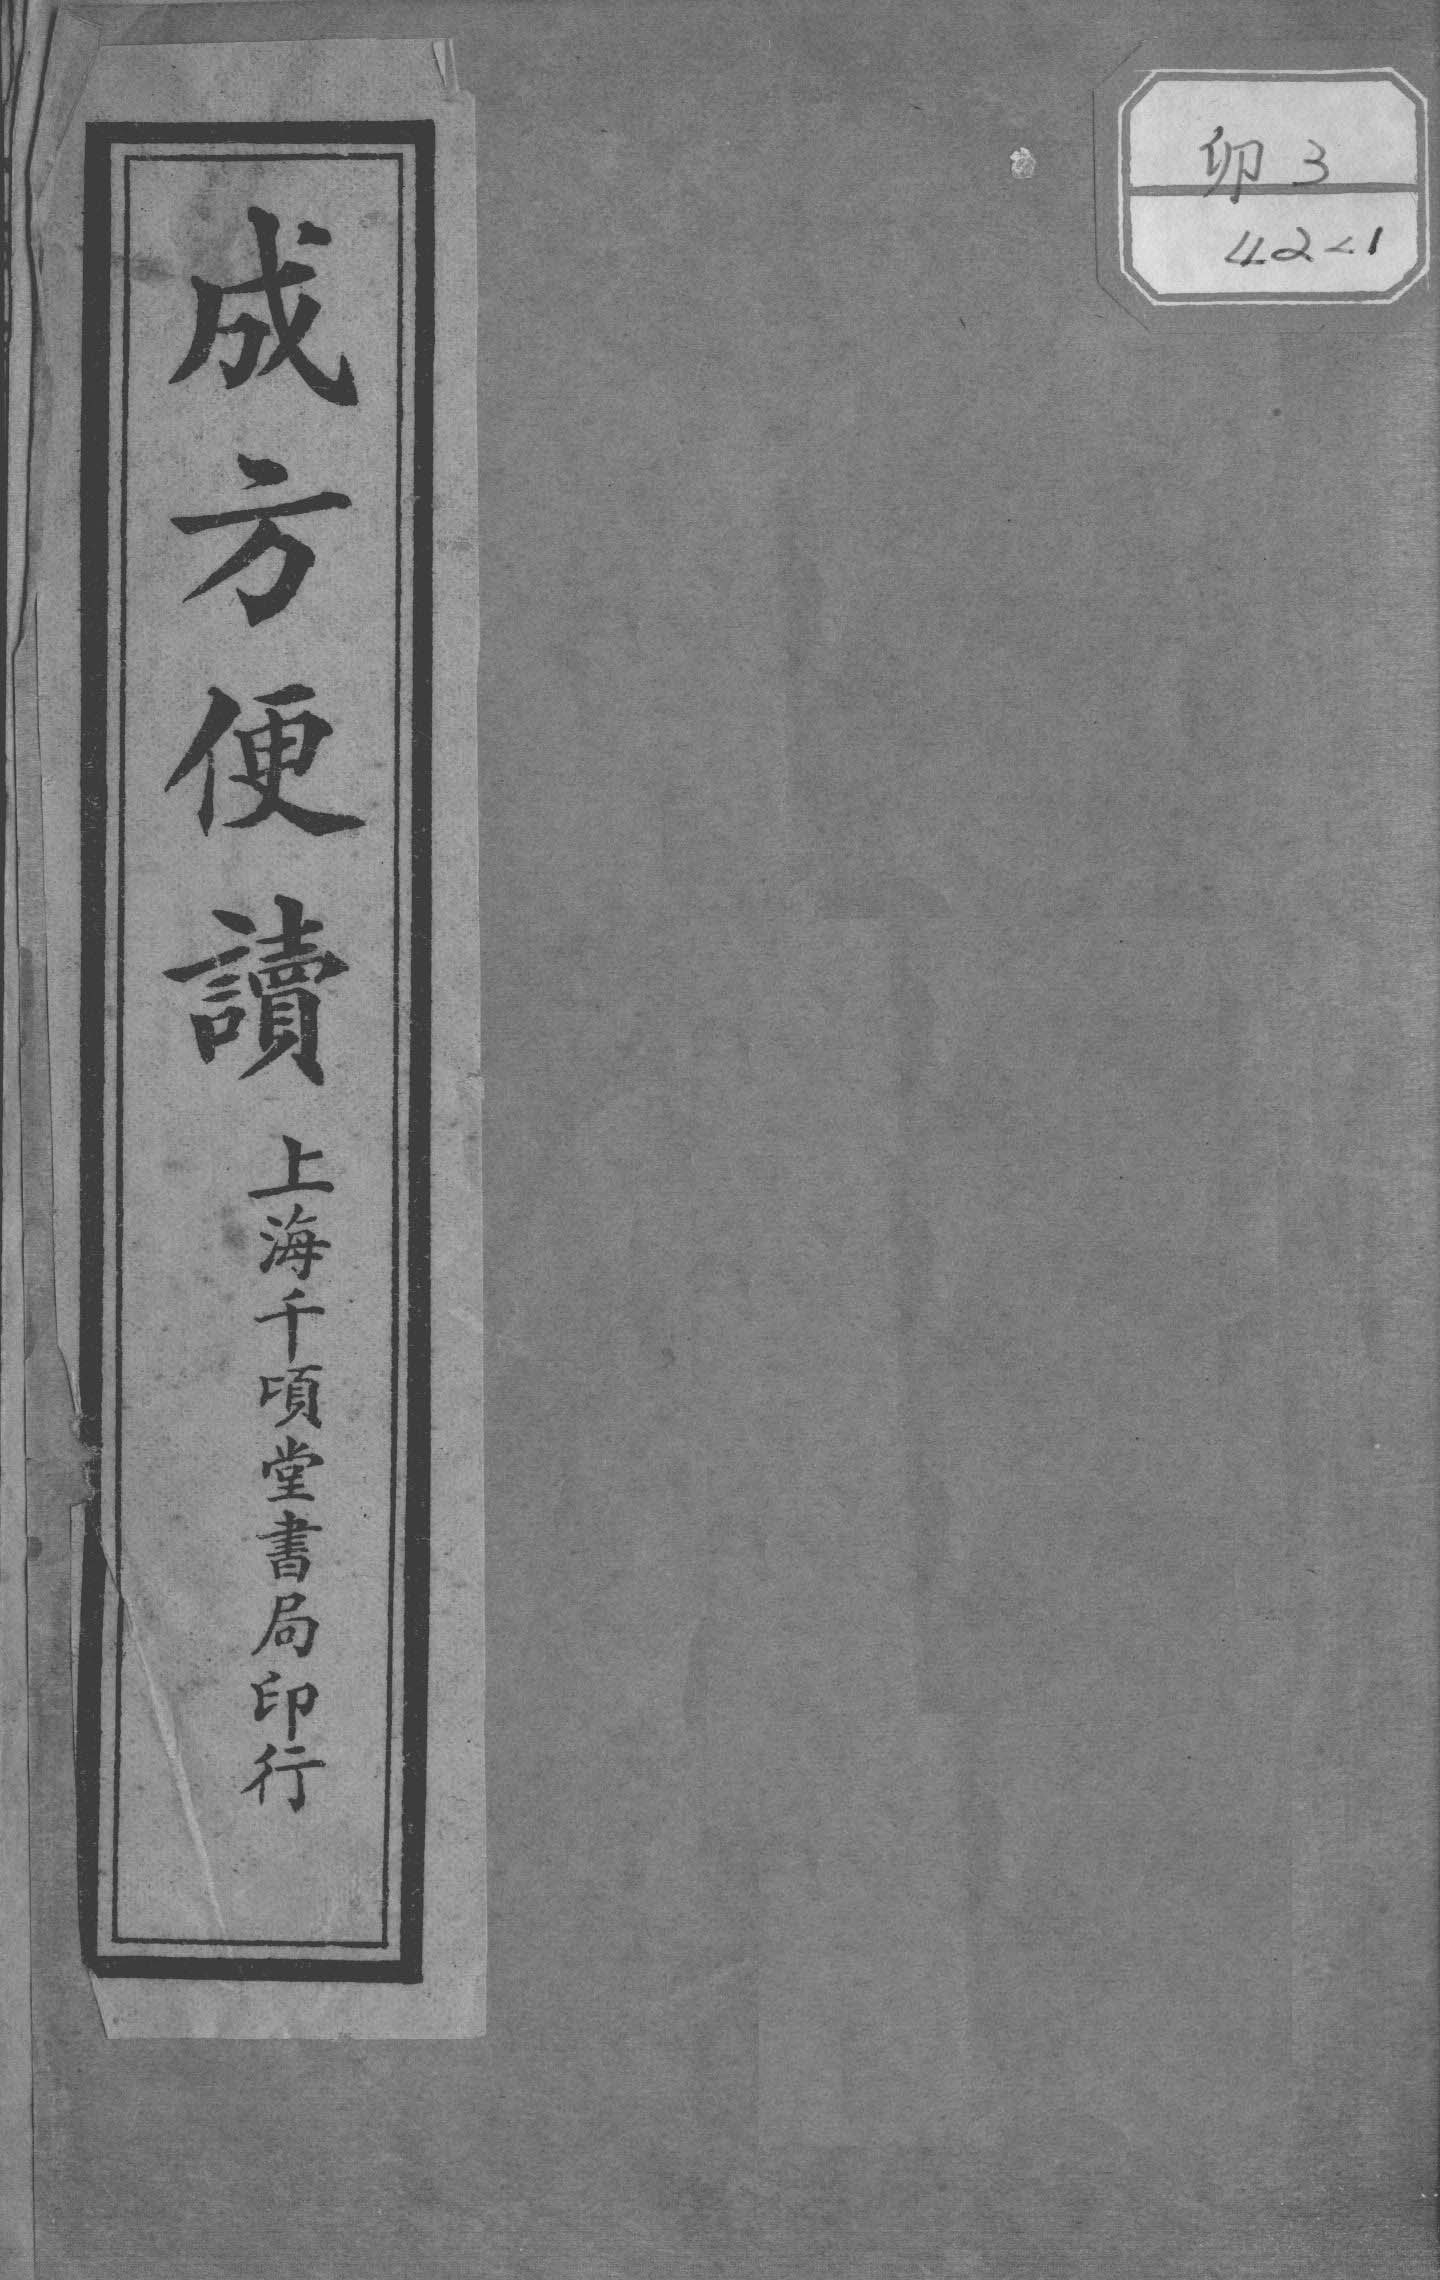 卯3
42-1
成方便讀
上海千頃堂書局印行